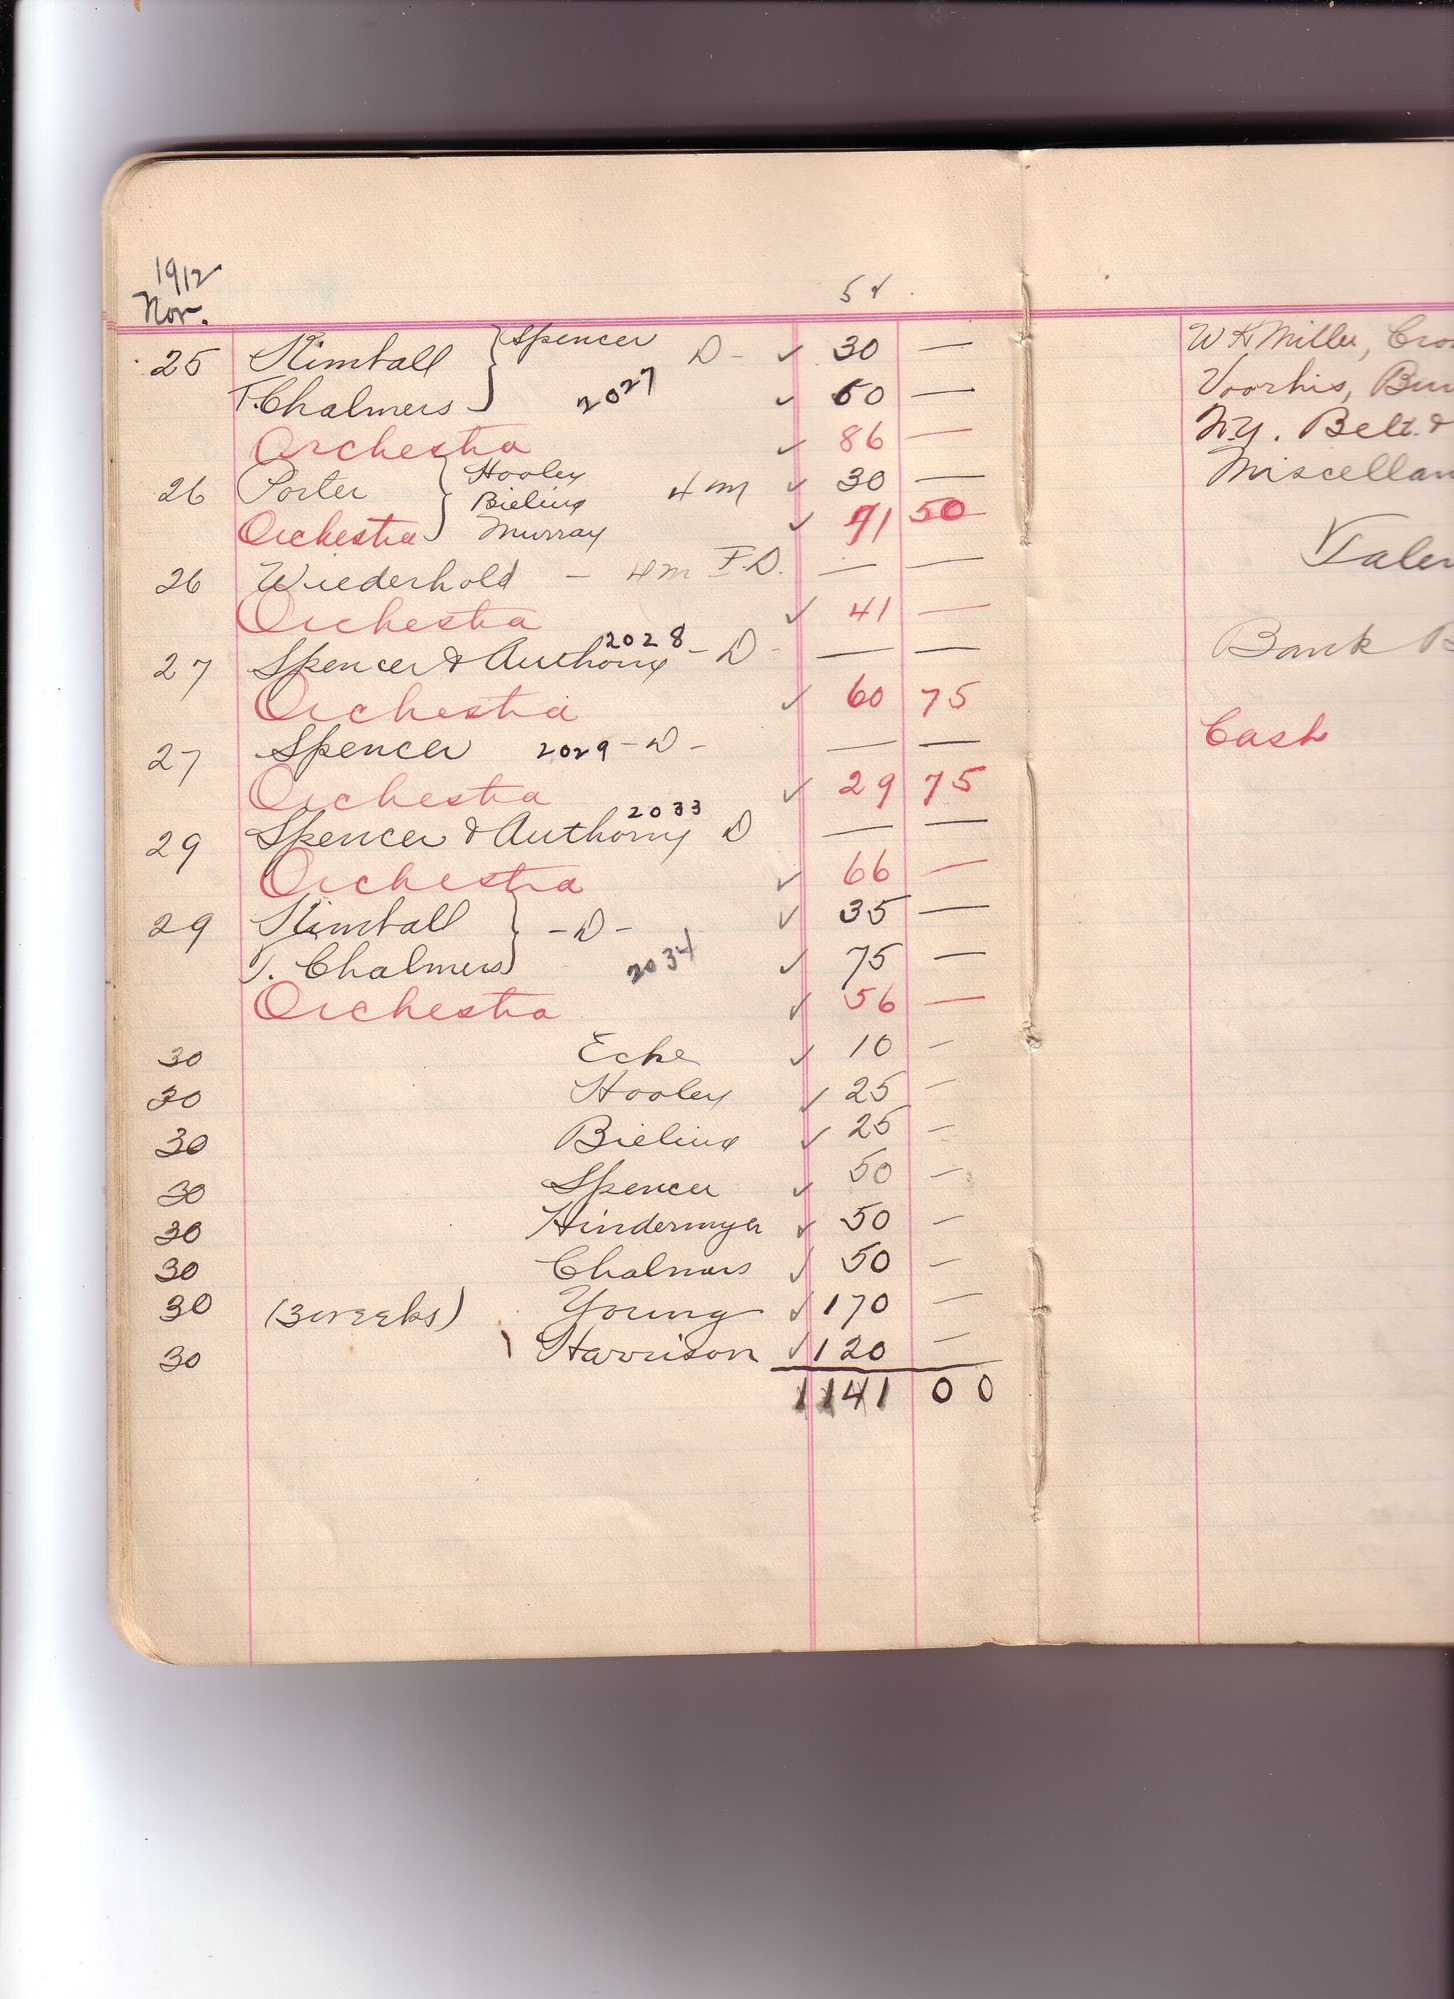 1912
Nov.
25 Kimball } Spencer D- ✓ 30 —
T. Chalmers } 2027 ✓ 60 —
Orchestra ✓ 86 —
26 Porter } Hooley 4 m ✓ 30 —
Bieling
Orchestra } Murray ✓ 91 50
26 Wiederhold - 4 m F.D. — —
Orchestra ✓ 41 —
27 Spencer & Anthony 2028 - D - — —
Orchestra ✓ 60 75
27 Spencer 2029 - D - — —
Orchestra ✓ 29 75
29 Spencer & Anthony 2033 D — —
Orchestra ✓ 66 —
29 Kimball } - D - ✓ 35 —
T. Chalmers } 2034 ✓ 75 —
Orchestra ✓ 56 —
30 Ecke ✓ 10 —
30 Hooley ✓ 25 —
30 Bieling ✓ 25 —
30 Spencer ✓ 50 —
30 Hindermyer ✓ 50 —
30 Chalmers ✓ 50 —
30 (3 weeks) Young ✓ 170 —
30 Harrison ✓ 120 —
1141 00
W H Miller,
Voorhis,
N.Y. Belt. &
Miscellan
Talen
Bank B
Cash